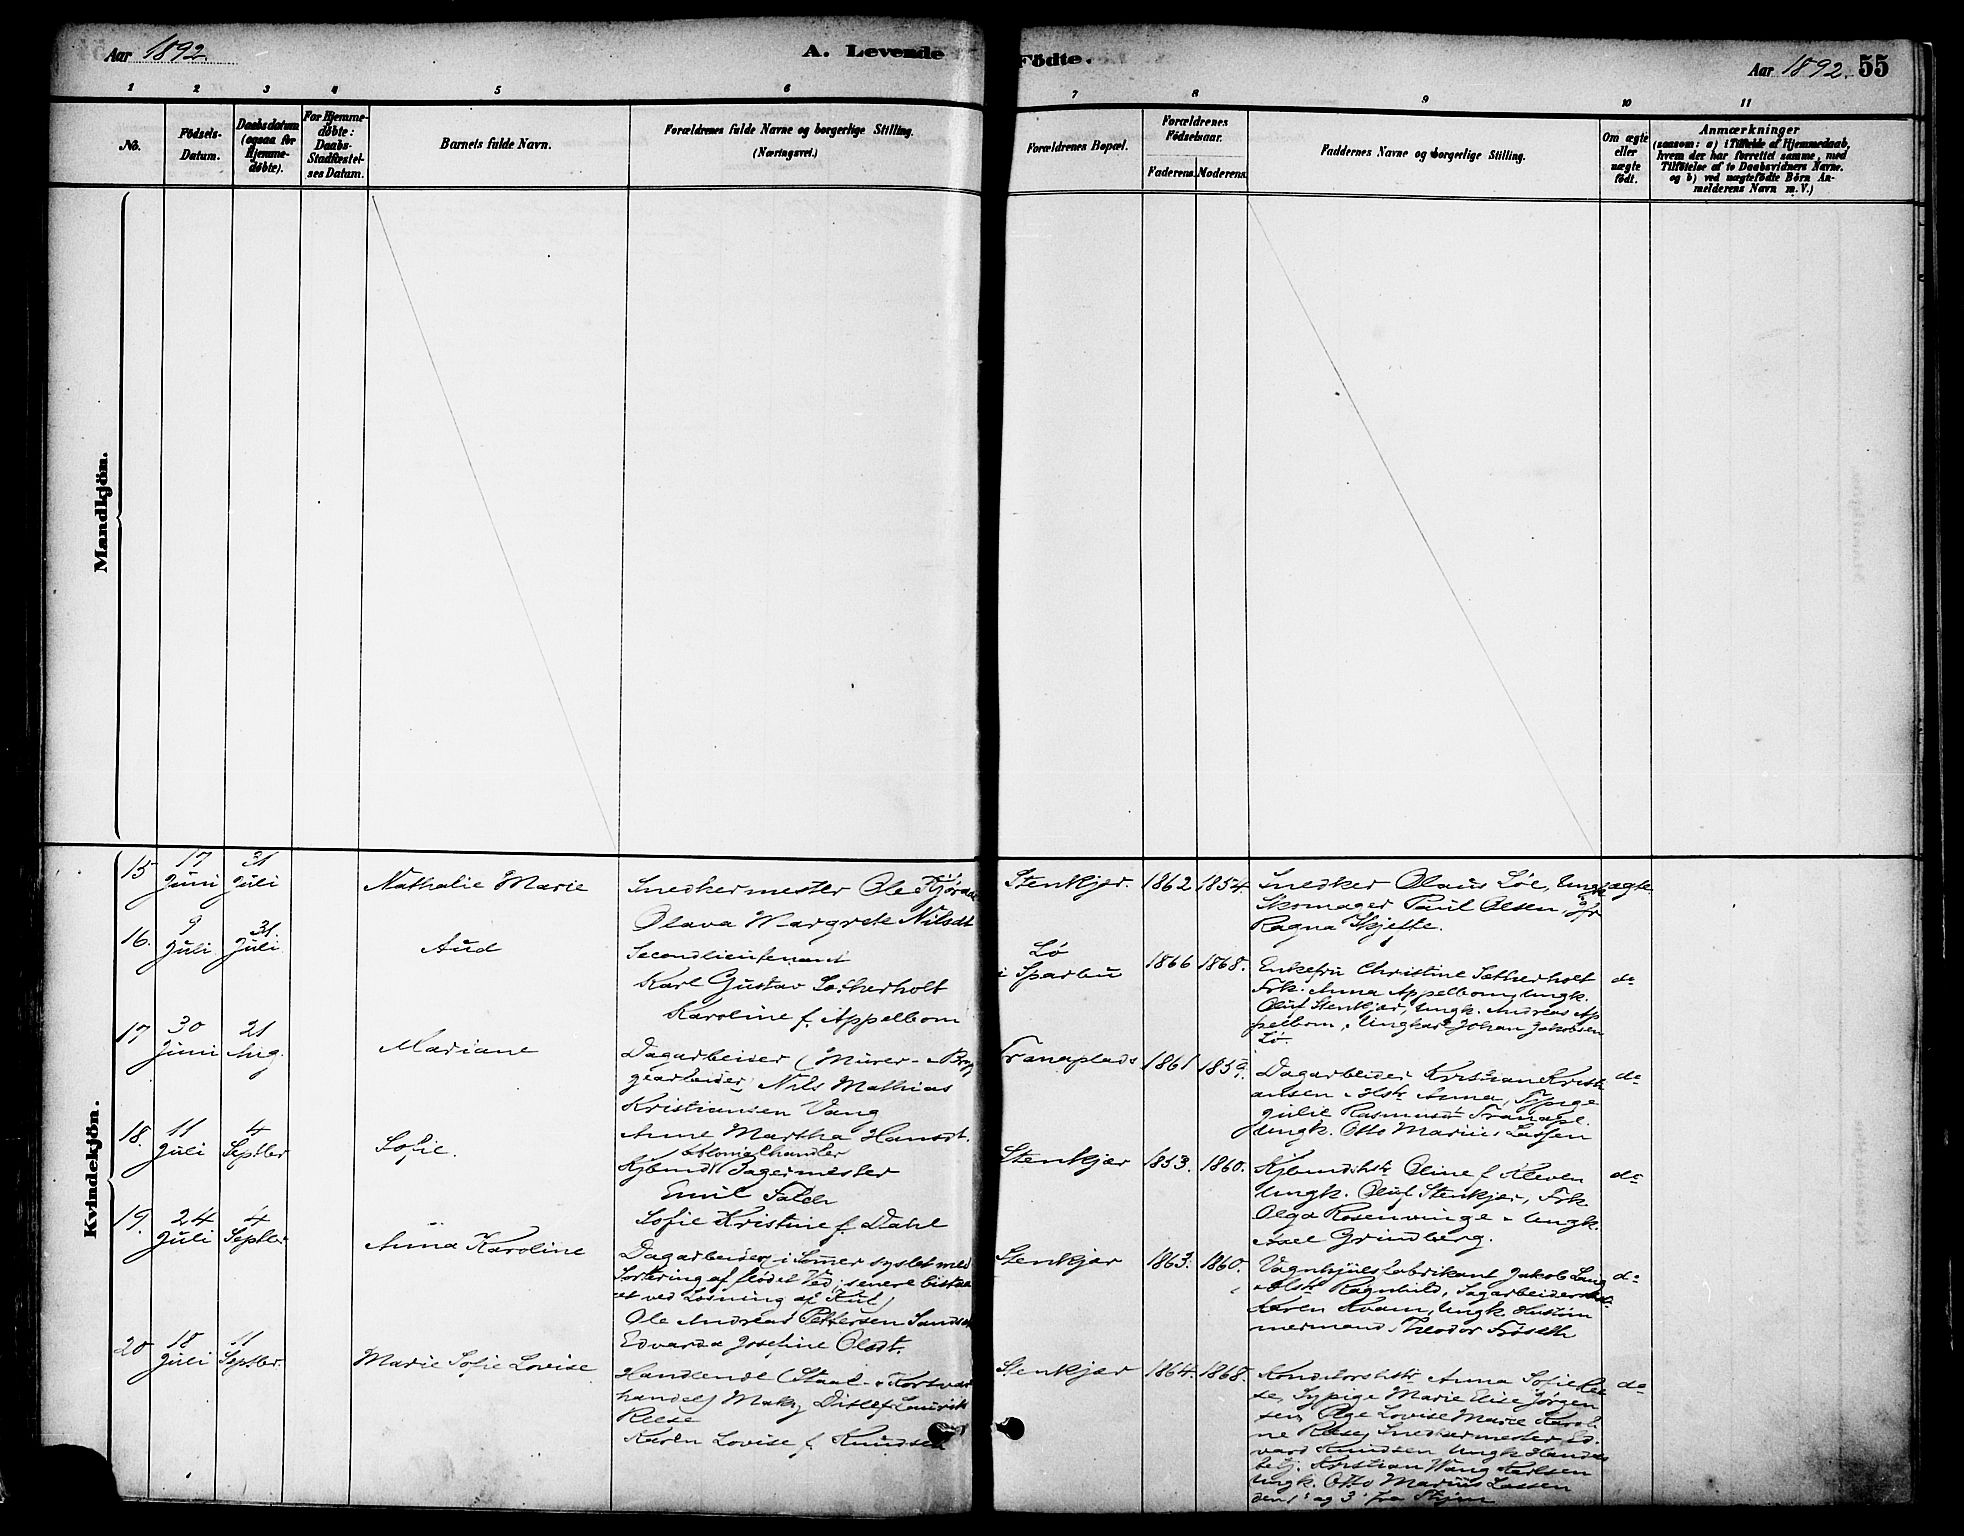 Aar 1892.
A. Levende Födte.
Aar 1892. 55
1 2 3 4 5 6 7 8 9 10 11
No.
Födsels-
Datum.
Daabsdatum
(ogsaa for
Hjemme-
døbte).
For Hjemme-
døbte:
Daabs-
Stadfæstel-
ses Datum.
Barnets fulde Navn.
Forældrenes fulde Navne og borgerlige Stilling.
(Næringsvei.)
Forældrenes Bopæl.
Forældrenes
Födselsaar.
Faderens. Moderens.
Faddernes Navne og borgerlige Stilling.
Om ægte
eller
uægte
födt.
Anmærkninger
(saasom: a) i Tilfælde af Hjemmedaab,
hvem der har forrettet samme, med
Tilföielse af to Daabsvidners Navne.
og b) ved uægtefödte Börn An-
melderens Navn m. V.)
Mandkjön.
Kvindekjön.
15
17 Juni
31 Juli
Nathalie Marie
Snedkermester Ole
Olava Margrete Nilsdt
Stenkjær.
1862
1854.
Snedker Olaus Löe, Ungk
Skomager Paul Olsen,
Ragna Skjefte.
ægte.
16.
9 Juli
31. Juli
Aud
Secondlieutenant
Karl Gustav Sætherholt
Karoline f. Appelbom
Lø
i Sparbu
1866
1868.
Enkefru Christine Sætherholt
Frk. Anna Appelbom, Ungk.
Oluf Stenkjær, Ungk. Andreas Ap
pelbom, Ungkarl Johan Jakobsen
Lø.
do
17
30 Juni
21 Aug.
Mariane
Dagarbeider (Murer- Bryg
gearbeider) Nils Mathias
Kristiansen Vang
Anne Martha Hansdt.
Tranaplads
1861
Dagarbeider Kristian Kristi
ansen Hstr Anna, Sypige
Julie Rasmusdt Tranapl.
Ungk. Otto Marius Lassen
do
18.
11 Juli
4 Septber
Sofie.
Kjöbmd Jagermester
Emil Falch
Sofie Kristine f. Dahl
Stenkjær
1853.
1860.
Kjöbmdshstr Oline f. Kleven
Ungk. Oluf Stenkjær, Frk
Olga Rosenvinge Ungk.
Axel Grindberg.
do
19.
24 Juli
4 Septber
Anna Karoline
Dagarbeider (i Sommer syslet med
Sortering af flödet Ved, senere
et ved Losning af Kul)
Ole Andreas Pettersen
Edvarda Josefine Olsdt.
Stenkjær
1863.
1860.
Vognhjulsfabrikant Jakob Lang
Hstr Ragnhild, Sagarbeider
Karen Kvam, Ungk Hustöm
mermand Theodor Fröseth
do
20
18 Juli
11 Septber.
Marie Sofie Lovise
Handlende (Staal- Kortvar
handel) Ditlef Laurits
Reese
Karen Lovise f. Knudsen
Stenkjær
1864.
1868.
Konditorshstr Anna Sofie Ree
se, Sypige Marie Elise Jörgen
sen, Pige Lovise Marie Karoli
ne Reese, Snedkermester Ed
vard Knudsen, Ungk Handels
betj. Kristian Wang Karlsen
Ungk. Otto Marius Lassen
den 1 og 3 fra Stjør
do